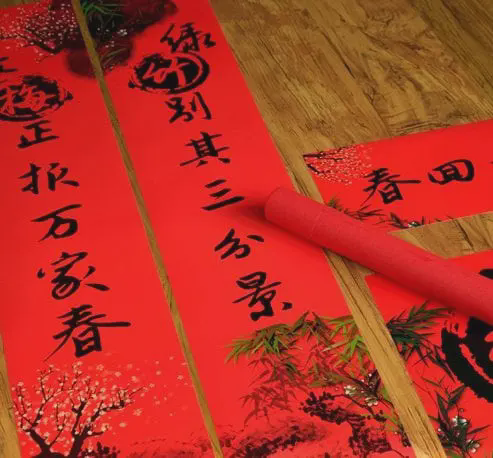 绿竹别其三分景
梅正报万家春
春回